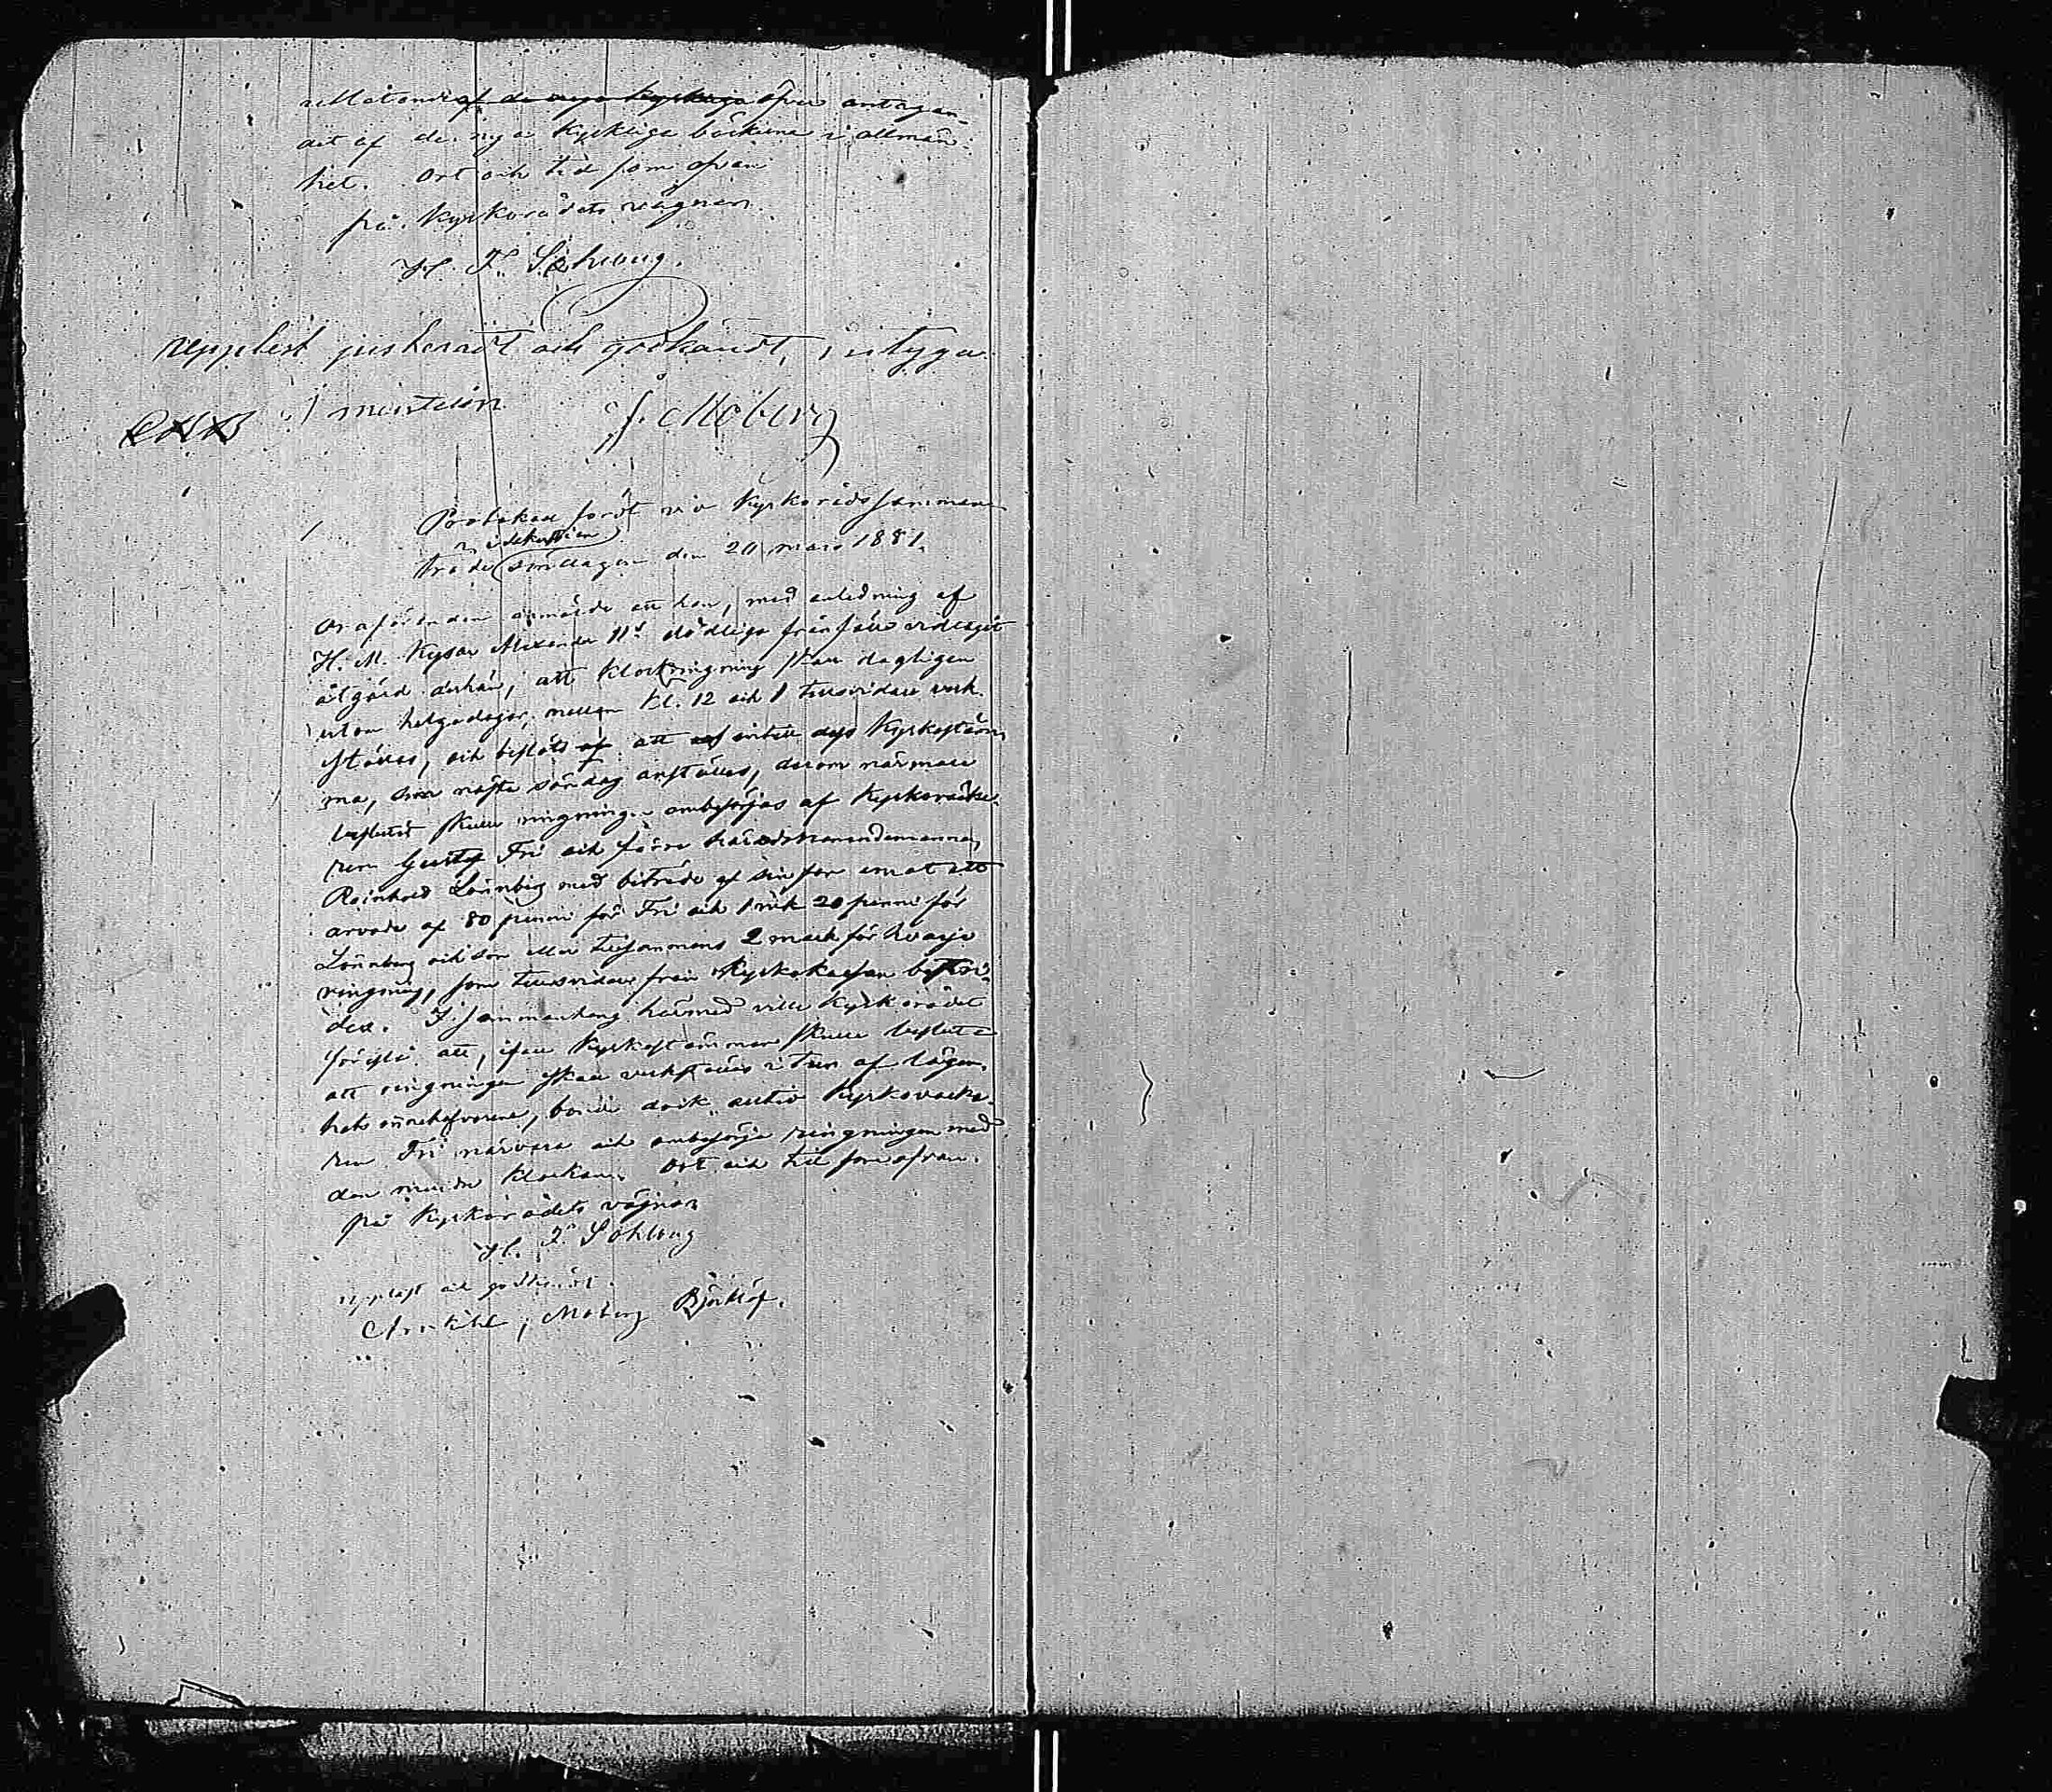 af de nya kyrkliga öfver antagan-
det af de nya kyrkliga böckerna i allmän
het. Ort och tid som ofvan
på Kyrkorådets vägnar.
H. F. Sohlberg.
upplest justeradt och godkändt, intyga
J. Moberg
Protokoll fördt vid Kyrkorådssamman
i sakristian
träde söndagen den 20 mars 1881.
Ordföranden anmälde att han, med anledning af
H. M. Kejsar Alexander II:s dödliga frånfälle vidtagit
åtgärd derhän, att klockringning skall dagligen
utom helgedagar mellan kl. 12 och 1 tillsvidare verk-
ställas, och beslöts af att intill dess Kyrkostäm
ma, som nästa söndag anställes, derom närmare
beslutit skulle ringningen ombesörjas af Kyrkoväkta-
ren Gustaf Fri och förre häradsnämndemannen
Reinhold Lönnberg med biträde af sin son emot ett
arvode af 80 penni för Fri och 1 mk 20 penni för
Lönnberg och son eller tillsammans 2 mark för hvarje
ringning, som tillsvidare från Kyrkokassan bestri-
des. I sammanhang härmed ville Kyrkorådet
föreslå att, ifall Kyrkostämman skulle besluta
att ringningen skall verkställas i tur af lägen-
hets innehafvarene, borde dock alltid Kyrkovakta-
ren Fri närvara och ombesörja ringningen med
den mindre klockan. Ort och tid som ofvan.
på Kyrkorådets vägnar
H. F. Sohlberg
uppläst och godkändt.
Moberg Björklöf.